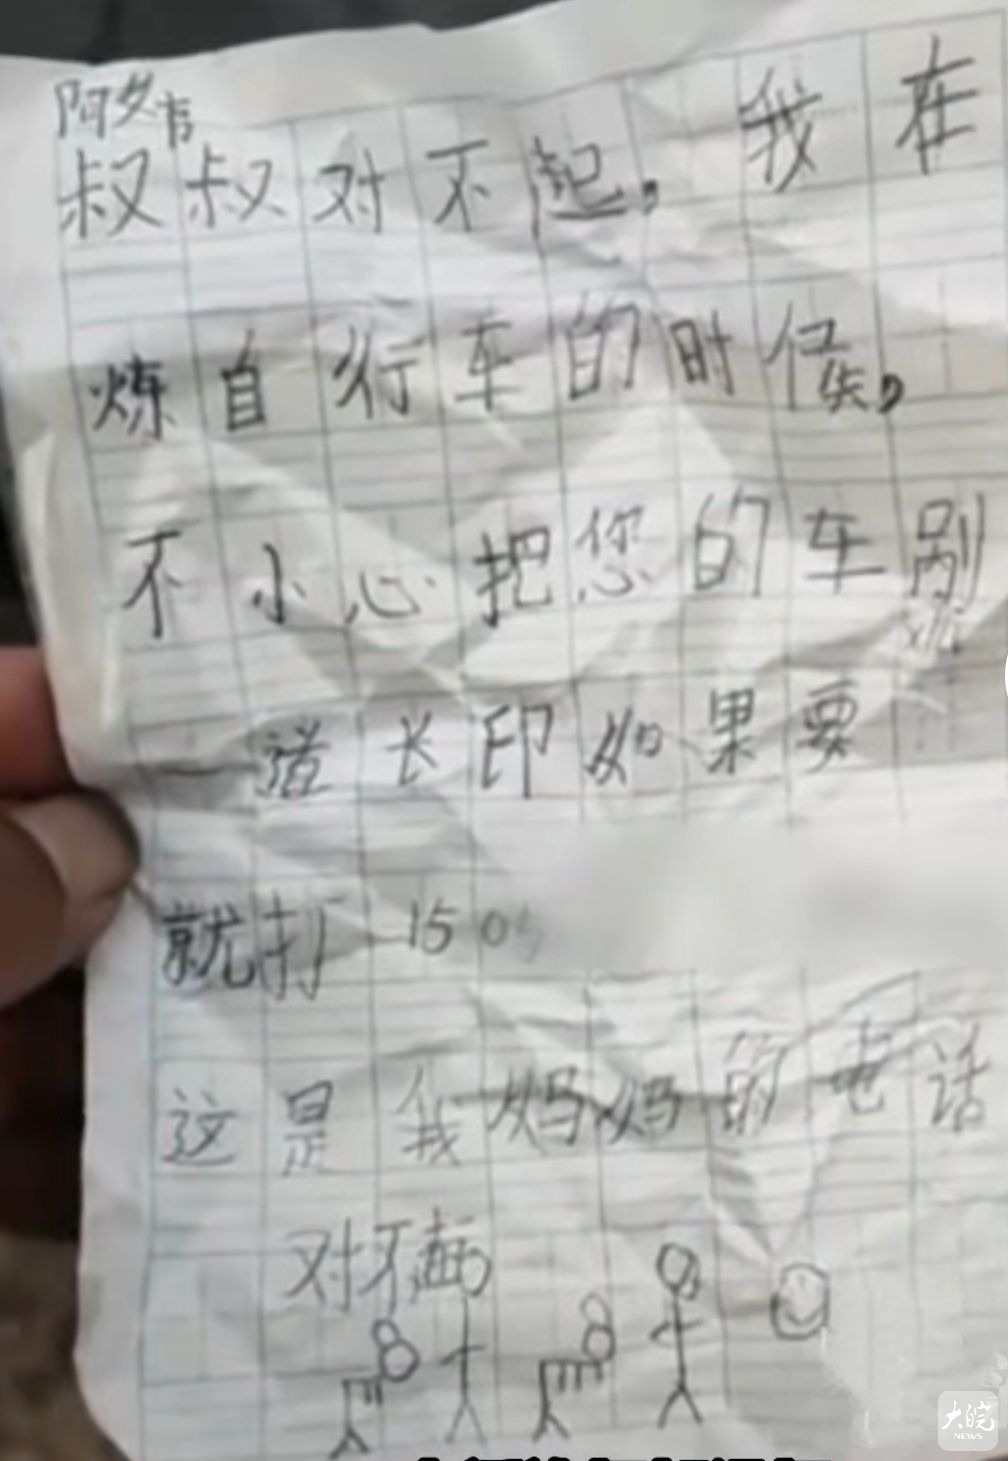 阿多韦
叔叔对不起，我在
炼自行车的时候，
不小心把您的车剐
一道长印如果要
就打 1505
这是我妈妈的电话
对不起
大皖
NEWS